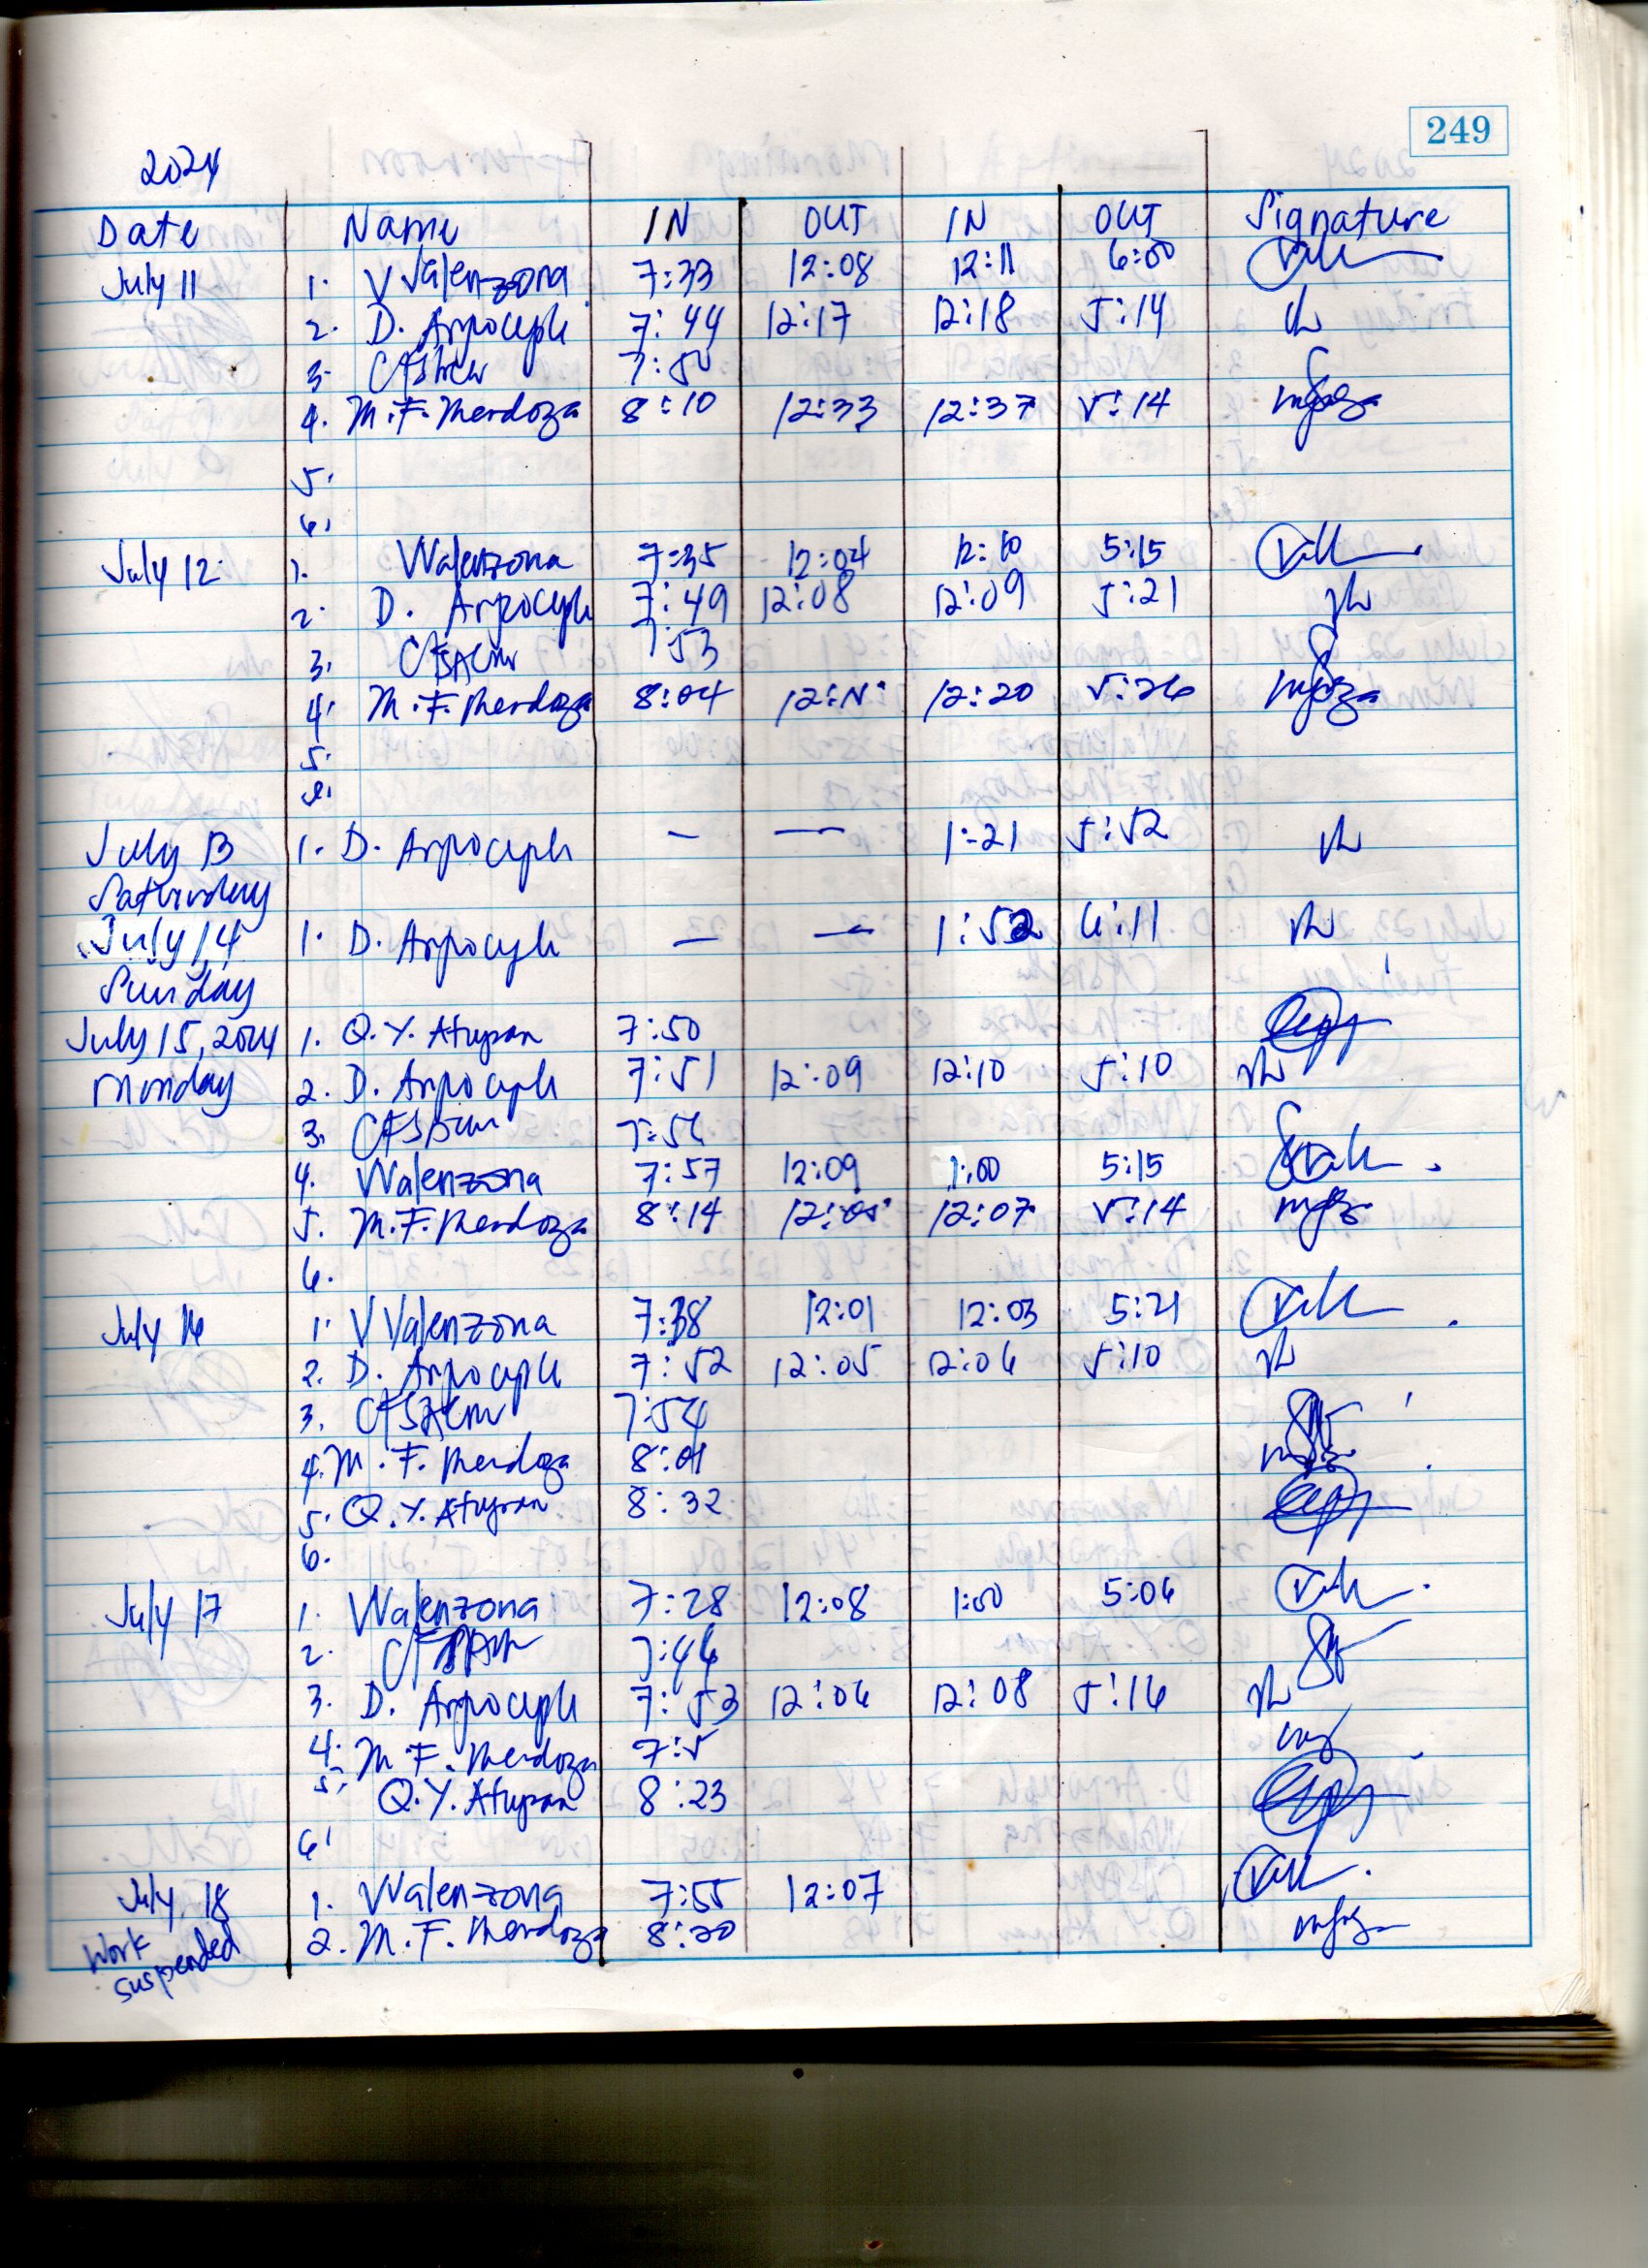 249
2024
Date Name IN OUT IN OUT Signature
July 11 1. V Valenzona 7:33 12:08 12:11 6:00
2. D. Arpoceph 7:44 12:17 12:18 5:14
3. 7:50
4. M.F. Mendoza 8:10 12:33 12:37 5:14
5.
6.
July 12 1. VValenzona 7:35 12:04 12:10 5:15
2. D. Arpoceph 7:49 12:08 12:09 5:21
3. 7:53
4. M.F. Mendoza 8:04 12:20 5:26
5.
6.
July 13 1. D. Arpoceph — — 1:21 5:52
Saturday
July 14 1. D. Arpoceph — — 1:52 6:11
Sunday
July 15, 2024 1. Q.Y. Atupan 7:50
Monday 2. D. Arpoceph 7:51 12:09 12:10 5:10
3. 7:56
4. VValenzona 7:57 12:09 1:00 5:15
5. M.F. Mendoza 8:14 12:07 5:14
6.
July 16 1. V Valenzona 7:38 12:01 12:03 5:21
2. D. Arpoceph 7:52 12:05 12:06 5:10
3. 7:54
4. M.F. Mendoza 8:01
5. Q.Y. Atupan 8:32
6.
July 17 1. VValenzona 7:28 12:08 1:00 5:06
2. 7:46
3. D. Arpoceph 7:53 12:06 12:08 5:16
4. M.F. Mendoza
5. Q.Y. Atupan 8:23
6.
July 18 1. VValenzona 7:55 12:07
Work 2. M.F. Mendoza 8:20
suspended